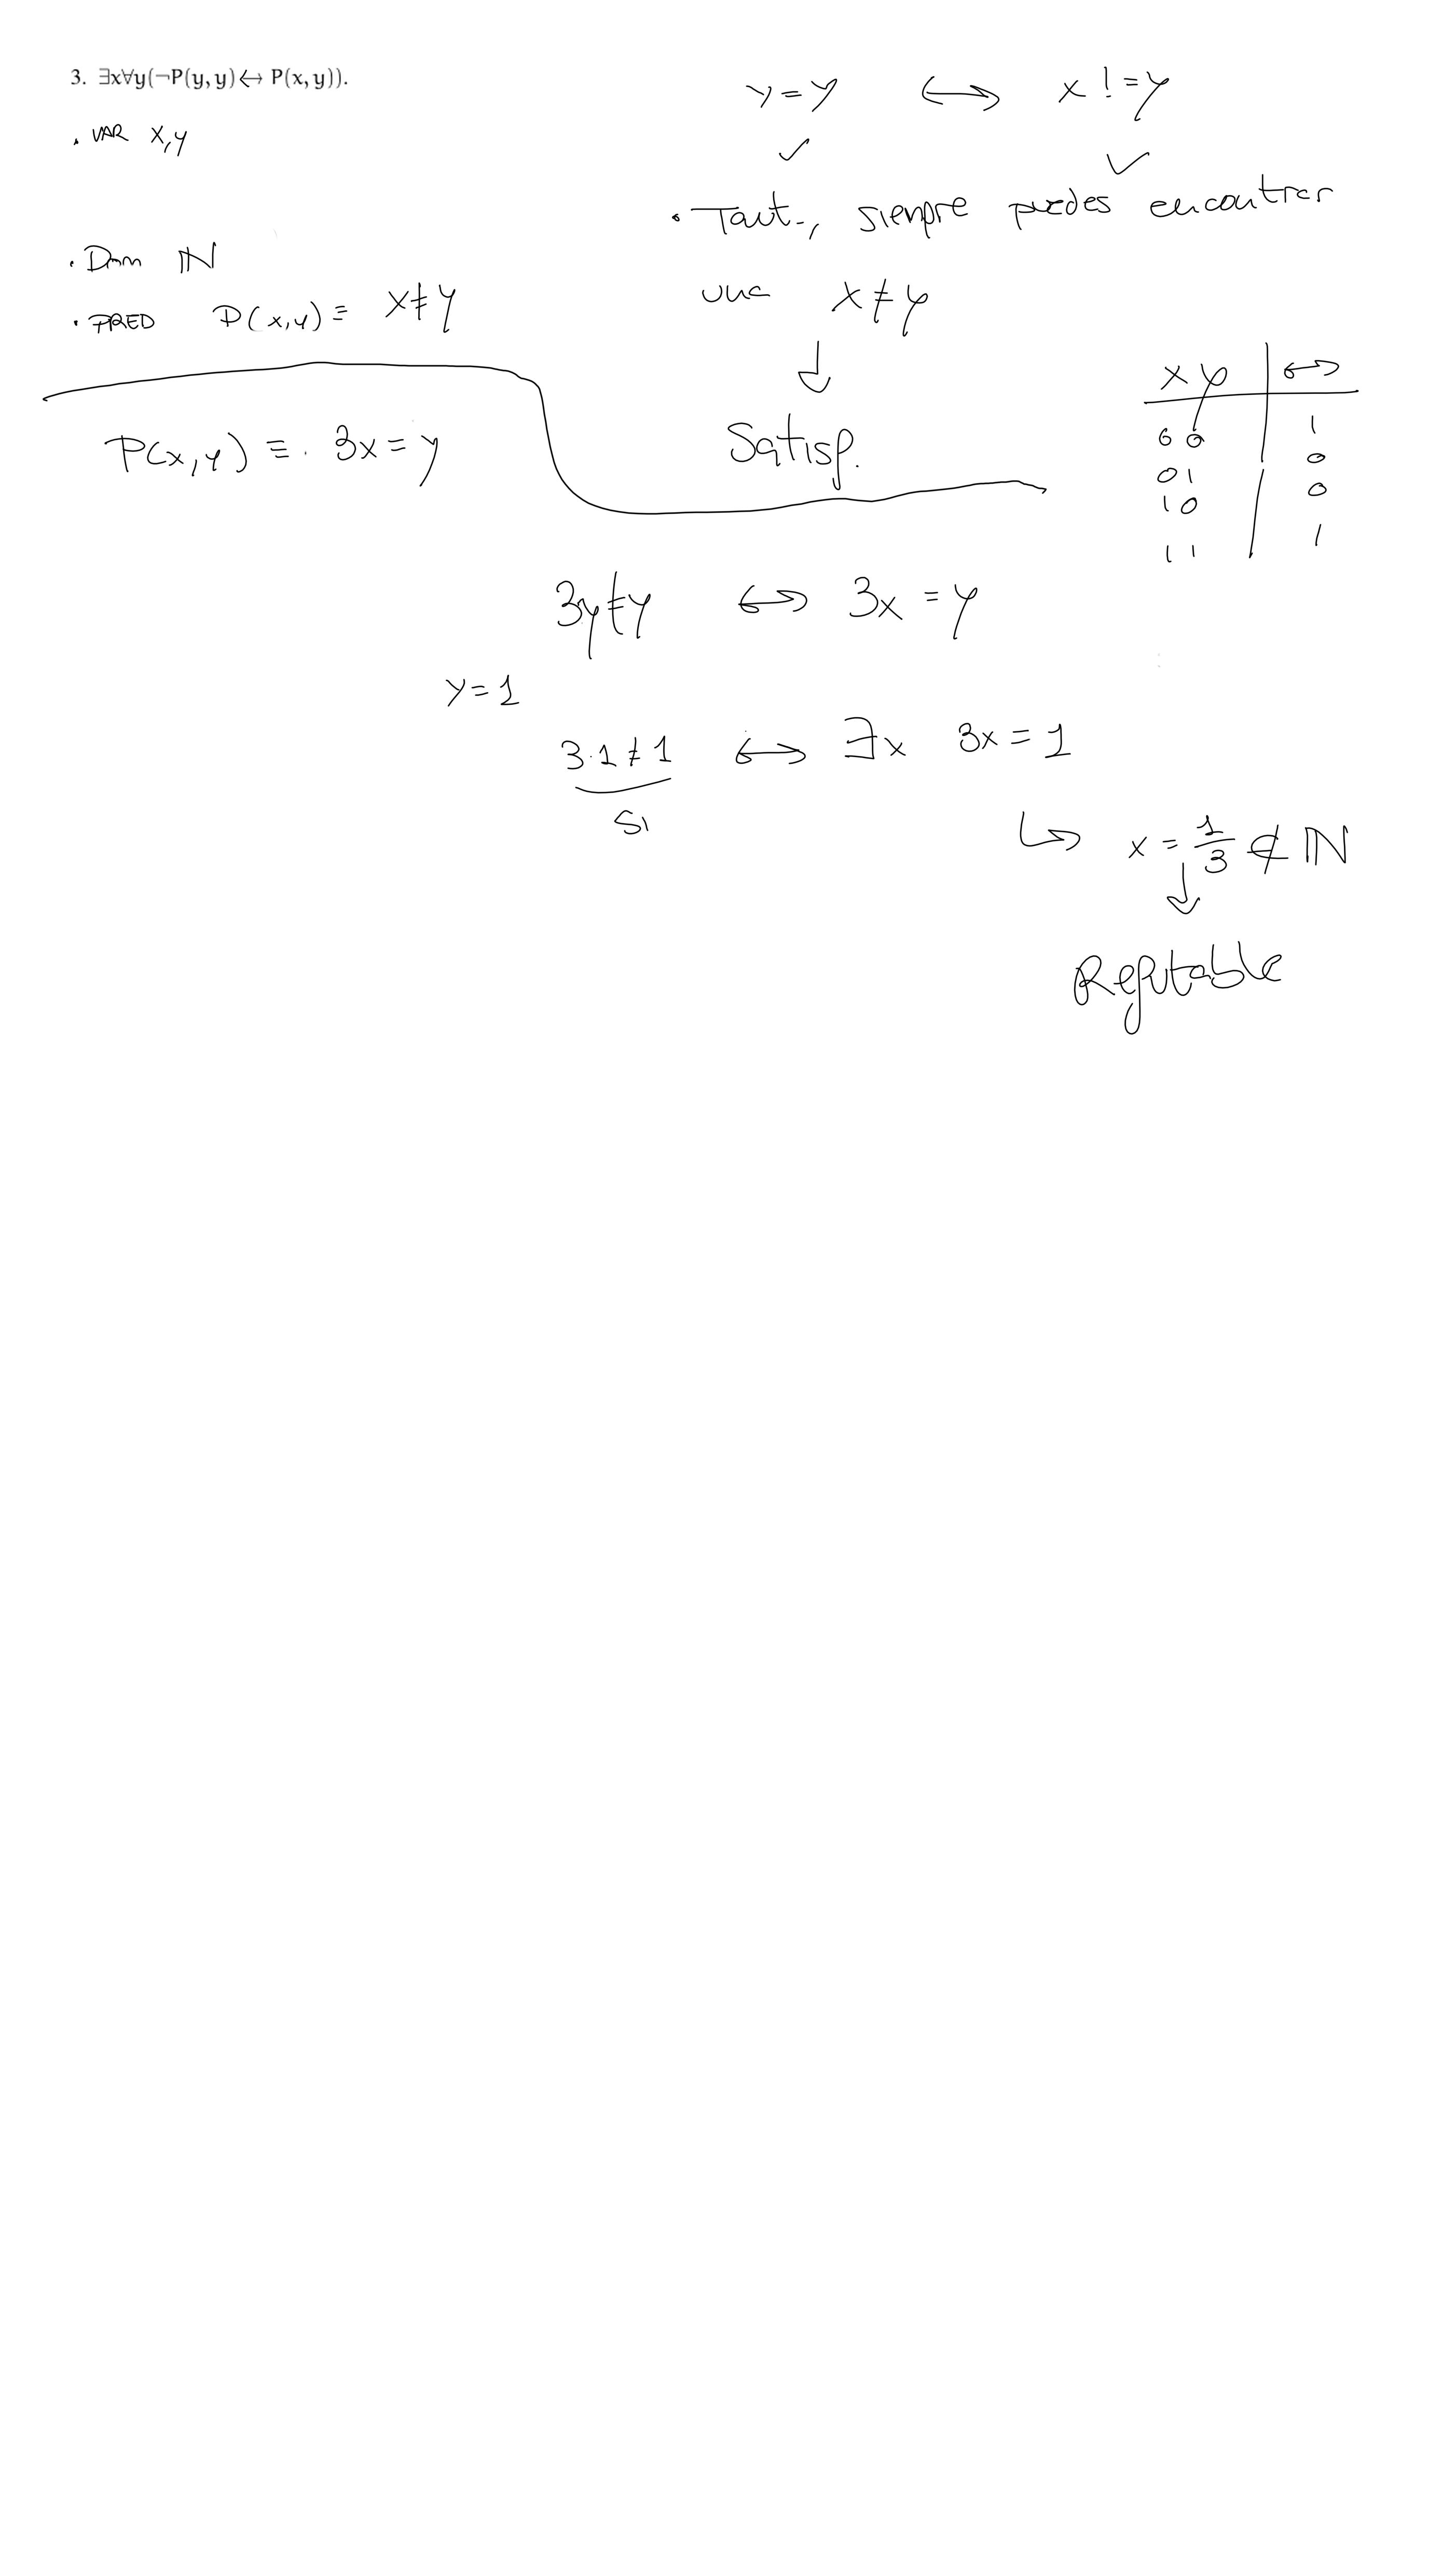 3. ∃x∀y(¬P(y,y)↔ P(x,y)).
. VAR x,y
. Dom ℕ
. PRED P(x,y) ≡ x≠y
y=y ↔ x!=y
✓ ✓
. Taut., siempre puedes encontrar
una x≠y
↓
Satisf.
x y | ↔
0 0 | 1
0 1 | 0
1 0 | 0
1 1 | 1
P(x,y) ≡. 3x=y
3y≠y ↔ 3x=y
y=1
3·1≠1 ↔ ∃x 3x=1
Si
↳ x=1/3 ∉ ℕ
↓
Refutable